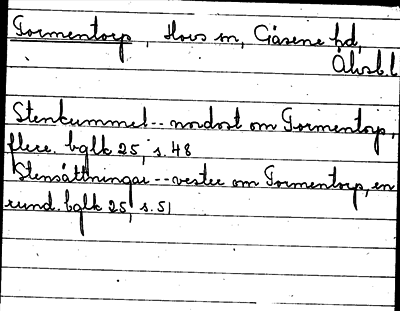 Tormentorp, Hovs sn, Gäsene hd,
Älvsb.l
Stenkummel -- nordost om Tormentorp,
flere. bglk 25, s. 48
Stensättningar -- vester om Tormentorp, en
rund. bglk 25, s. 51